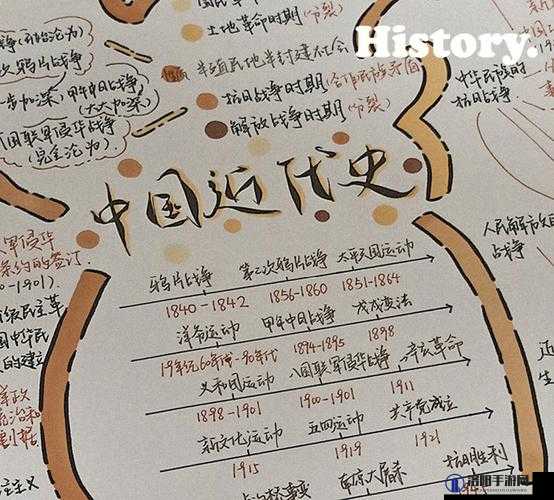 History.
土地革命时期(分裂)
半殖民地半封建社会
抗日战争时期
解放战争时期(分裂)
次鸦片战争
步加深
甲午中日战争
(大大加深)
国联军侵华战争
完全沦为)
中华民族的
抗日战争.
中国近代史
军侵华
条约的签订.
-1901)
鸦片战争 第二次鸦片战争 太平天国运动
1840-1842 1856-1860 1851-1864
洋务运动 甲午中日战争 戊戌变法
19世纪60年代-90年代 1894-1895 1898
义和团运动 八国联军侵华战争 辛亥革命
1898-1901 1900-1901 1911
新文化运动 五四运动 共产党成立
1915 1919 1921
南京大屠杀 抗日胜利
人民解放
战争.
的建立
洛阳手游网